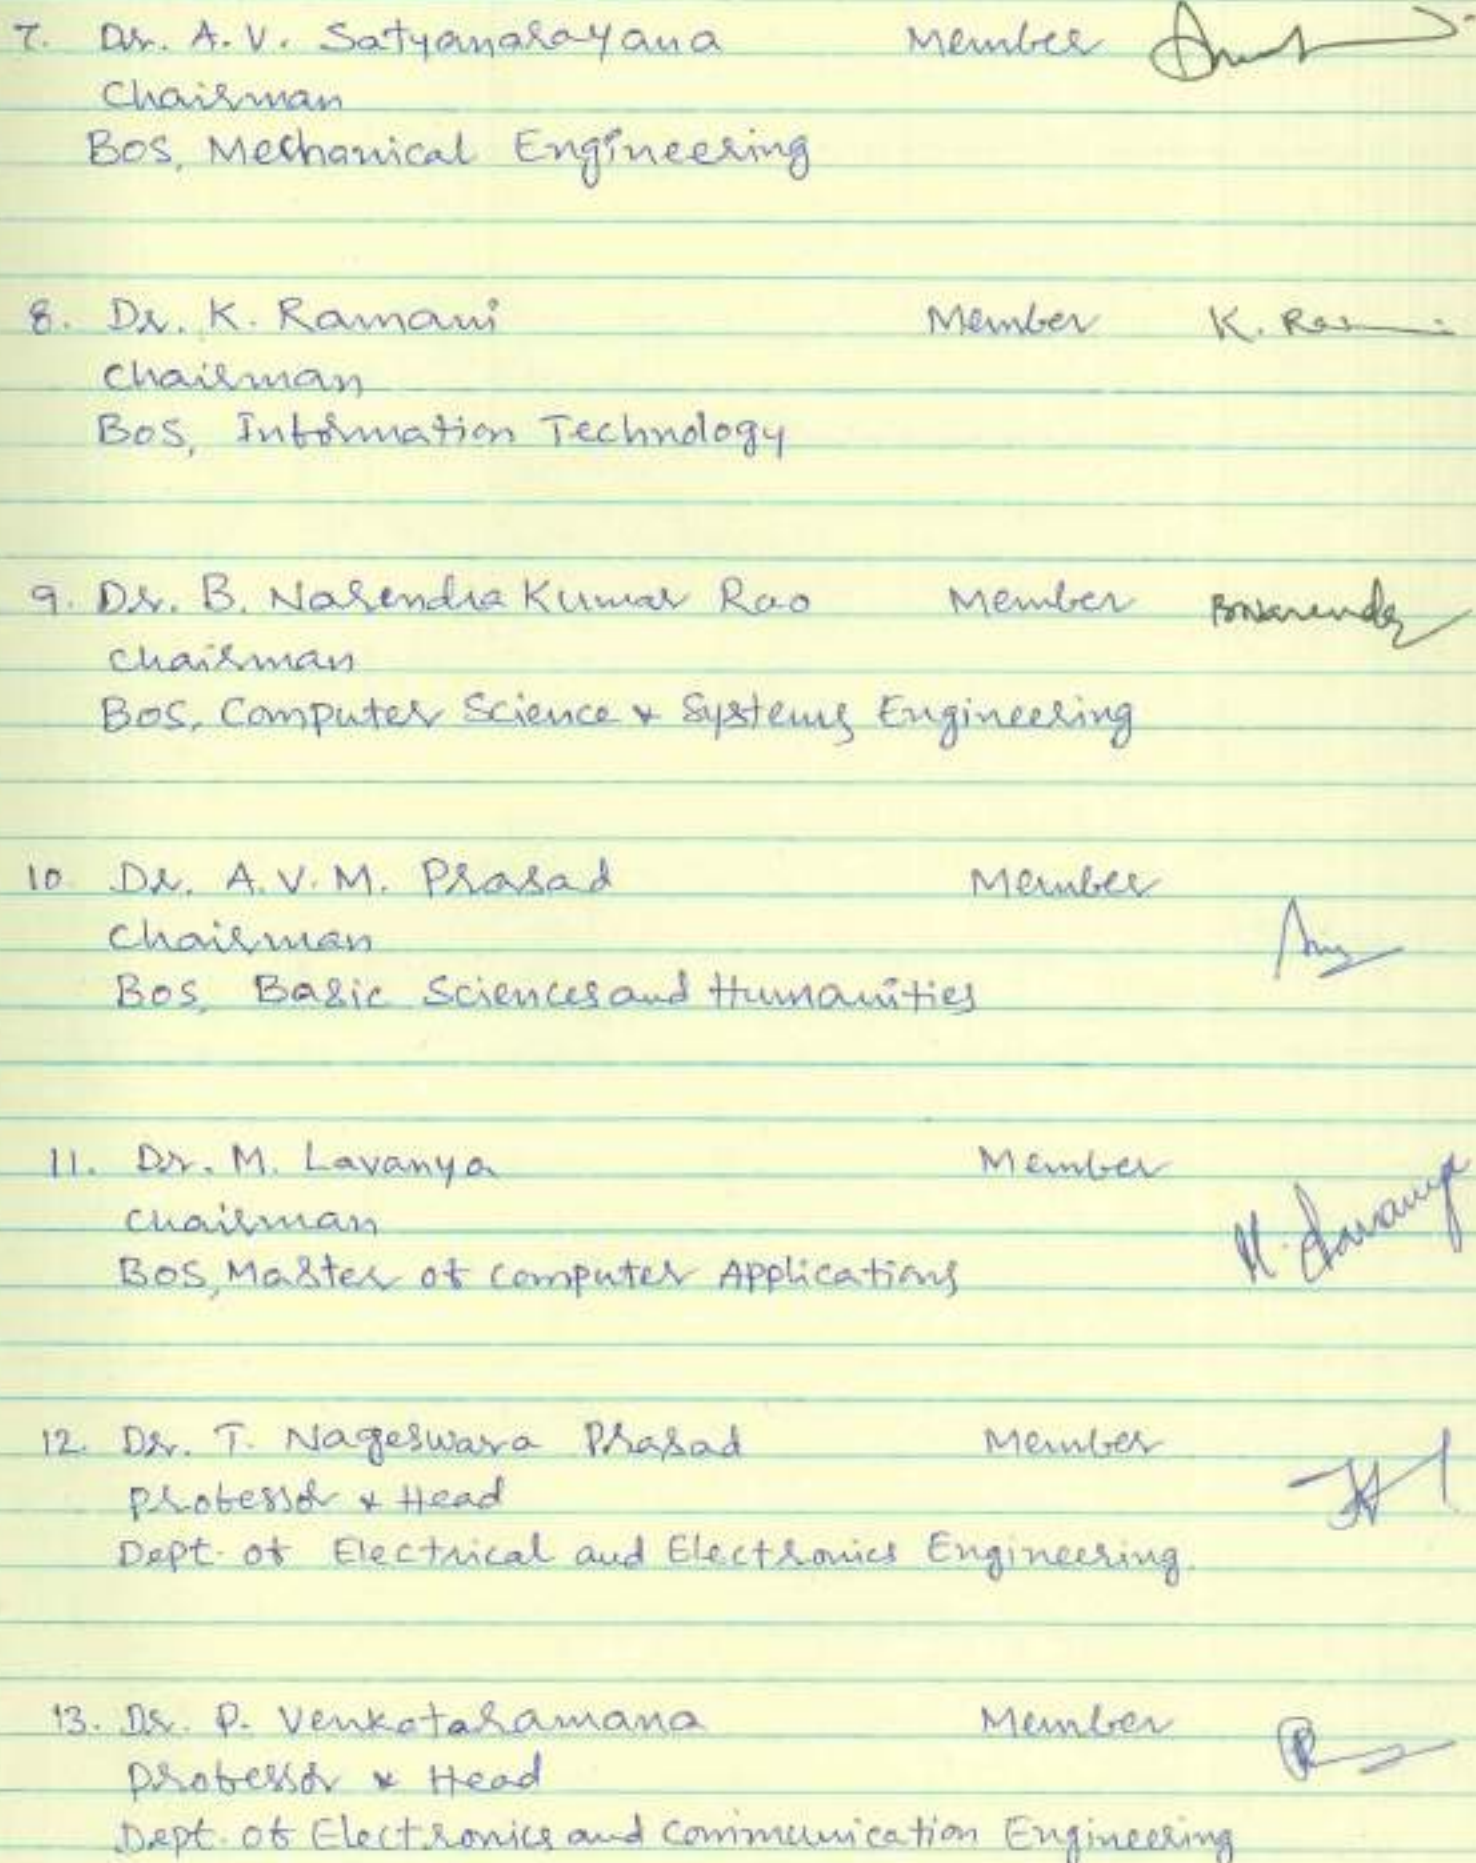 7. Dr. A.V. Satyanarayana Member
Chairman
BOS, Mechanical Engineering
8. Dr. K. Ramani Member K. Ramani
Chairman
BOS, Information Technology
9. Dr. B. Narendra Kumar Rao Member BNarendra
Chairman
BOS, Computer Science & Systems Engineering
10 Dr. A.V.M. Prasad Member
Chairman
BOS, Basic Sciences and Humanities
11. Dr. M. Lavanya Member M. Lavanya
Chairman
BOS, Master of Computer Applications
12. Dr. T. Nageswara Prasad Member
Professor & Head
Dept. of Electrical and Electronics Engineering.
13. Dr. P. Venkataramana Member
Professor & Head
Dept. of Electronics and Communication Engineering